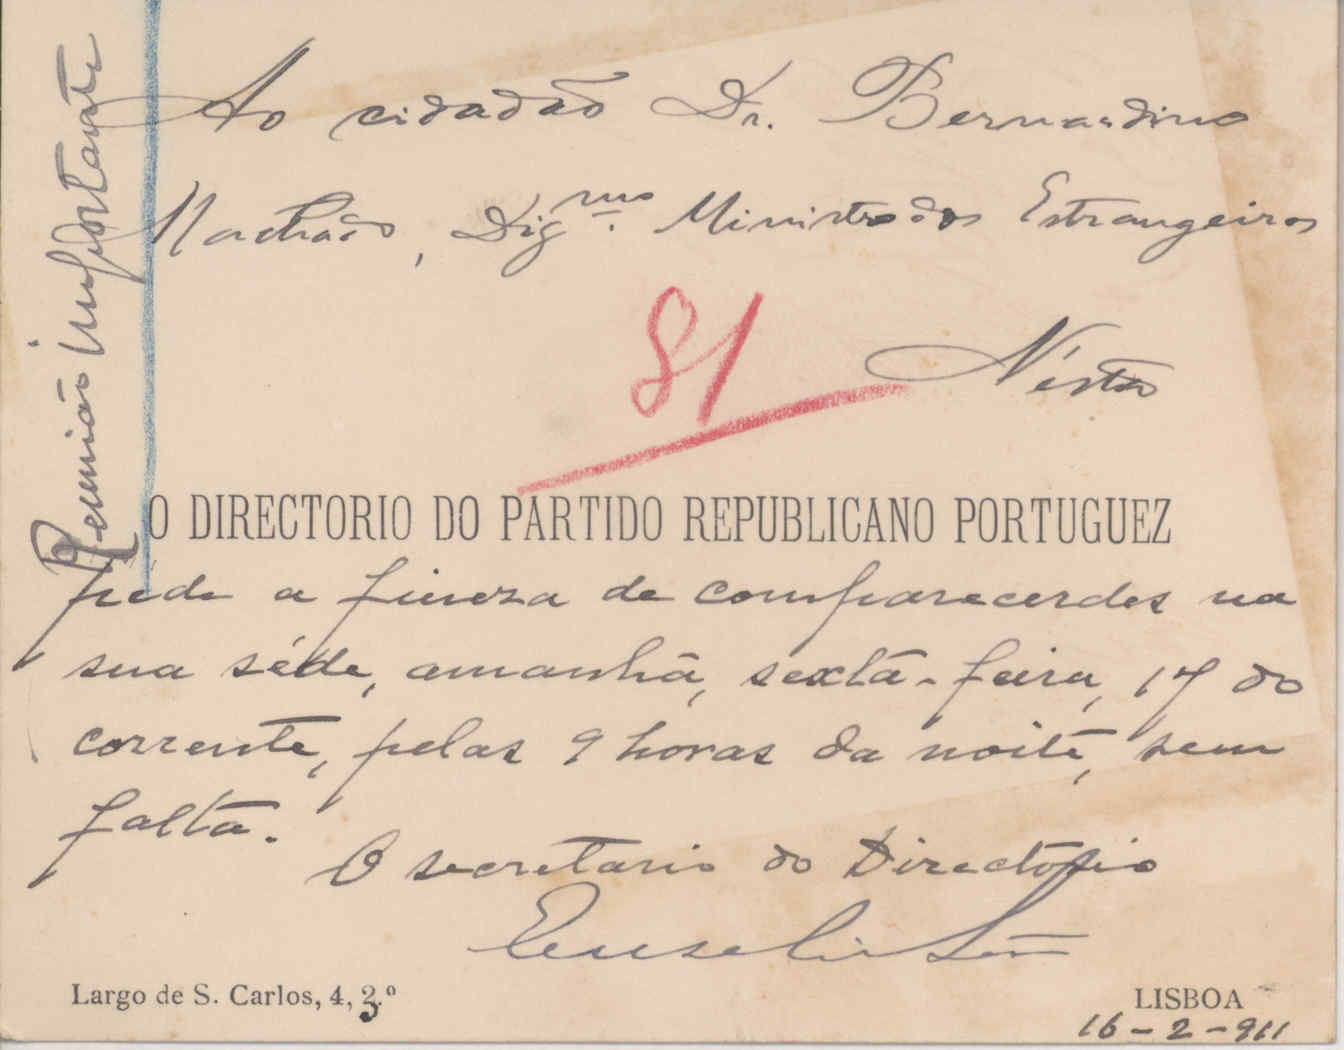 Reunião importante
Ao cidadão Dr. Bernardino
Machado, Dig.mo Ministro dos Estrangeiros
81
N'esta
O DIRECTORIO DO PARTIDO REPUBLICANO PORTUGUEZ
pede a fineza de comparecerdes na
sua séde, amanhã, sexta-feira, 17 do
corrente, pelas 9 horas da noite, sem
falta.
O secretario do Directório
Eusebio Leão
Largo de S. Carlos, 4, 3.º
LISBOA
16-2-911